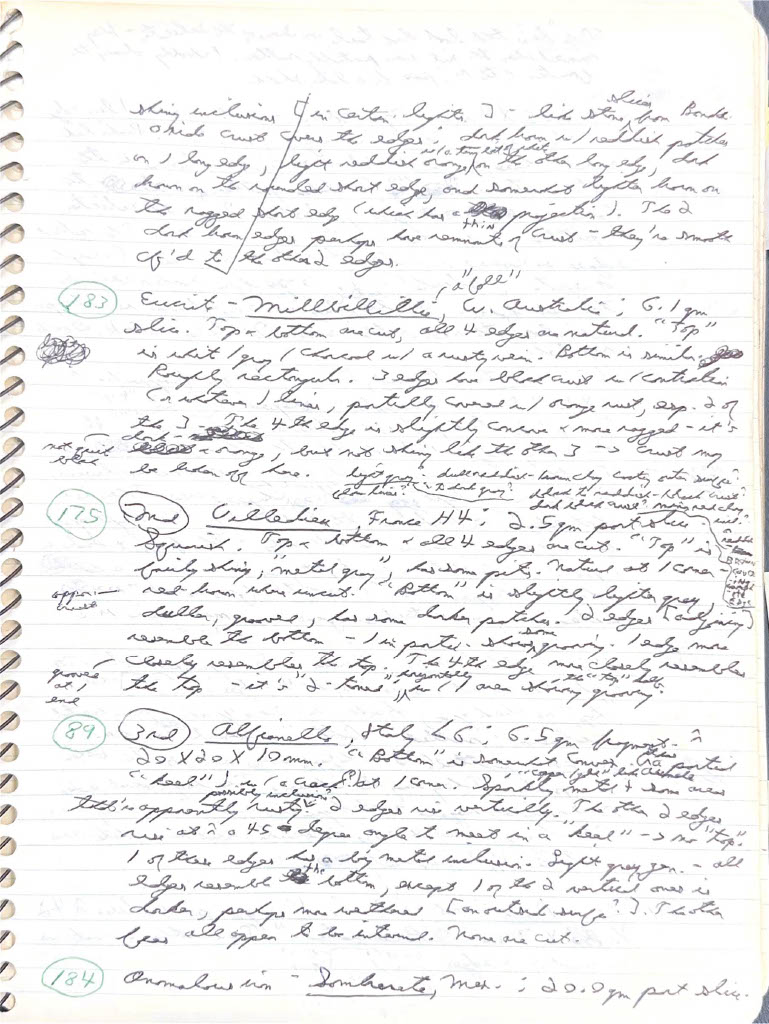 slices
shiny inclusions [in certain lights] - like stone from Bondoc.
Oxide crust covers the edges: dark brown w/ reddish patches
on 1 long edge, light reddish orange on the other long edge, dark
brown on the rounded short edge, and somewhat lighter brown on
the ragged short edge (which has a thin projection). The 2
dark brown edges perhaps have remnants of crust - they're smooth
cf'd to the other 2 edges.
183 Eucrite - Millbillillie, W. Australia; 6.1 gm
"a fall"
slice. Top & bottom are cut, all 4 edges are natural. "Top"
is white/gray/charcoal w/ a rusty vein. Bottom is similar.
Roughly rectangular. 3 edges have black crust w/ contraction
(or whatever) lines, partially covered w/ orange rust, esp. 2 of
the 3. The 4th edge is slightly concave & more ragged - it's
dark & orange, but not shiny like the other 3 -> crust may
not quite black
be broken off here.
175 2nd Villedieu, France H4; 2.5 gm part slice
Squarish. Top & bottom & all 4 edges are cut. "Top" is
fairly shiny, "metal gray", has some pits. Natural at 1 corner -
red-brown where uncut. "Bottom" is slightly lighter gray,
duller, grooves, has some darker patches. 2 edges [adjoining]
resemble the bottom - 1 in partic. shows some grooving. 1 edge more
closely resembles the top. The 4th edge more closely resembles
the top - it's "2-toned" horizontally, w/ the "top" half even showing grooving.
grooves at 1 end
89 3rd Alfianello, Italy L6; 6.5 gm fragment - ^
20 X 20 X 10 mm. "Bottom" is somewhat convex (has a partial
"heel") w/ (a crack?) at 1 corner. Sparkly metal & some areas
that's apparently rusty. 2 edges rise vertically. The other 2 edges
possibly inclusion?
rise at ~ a 45 degree angle to meet in a "heel" -> no "top".
1 of these edges has a big metal inclusion. Light gray gen. - all
edges resemble the bottom, except 1 of the 2 vertical ones is
darker, perhaps more weathered [an outside surface?]. The other
faces all appear to be internal. None are cut.
184 Anomalous iron - Sombrerete, Mex.; 20.0 gm part slice.